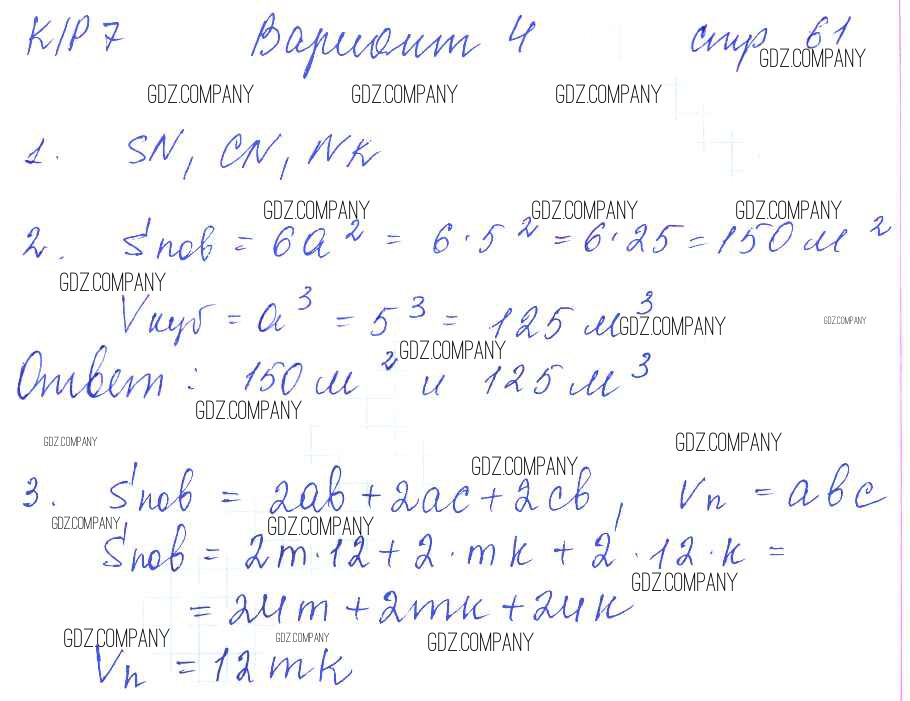 К/Р 7 Вариант 4 стр 61
GDZ.COMPANY
GDZ.COMPANY GDZ.COMPANY GDZ.COMPANY
1. SN, CN, NK
GDZ.COMPANY GDZ.COMPANY GDZ.COMPANY
2. Sпов = 6a² = 6·5² = 6·25 = 150 м²
GDZ.COMPANY
Vкуб = a³ = 5³ = 125 м³
GDZ.COMPANY GDZ.COMPANY
GDZ.COMPANY
Ответ: 150 м² и 125 м³
GDZ.COMPANY
GDZ.COMPANY GDZ.COMPANY
GDZ.COMPANY
3. Sпов = 2ab + 2ac + 2cb, Vп = abc
GDZ.COMPANY GDZ.COMPANY
Sпов = 2m·12 + 2·mk + 2·12·k =
GDZ.COMPANY
= 24m + 2mk + 24k
GDZ.COMPANY GDZ.COMPANY GDZ.COMPANY
Vп = 12mk